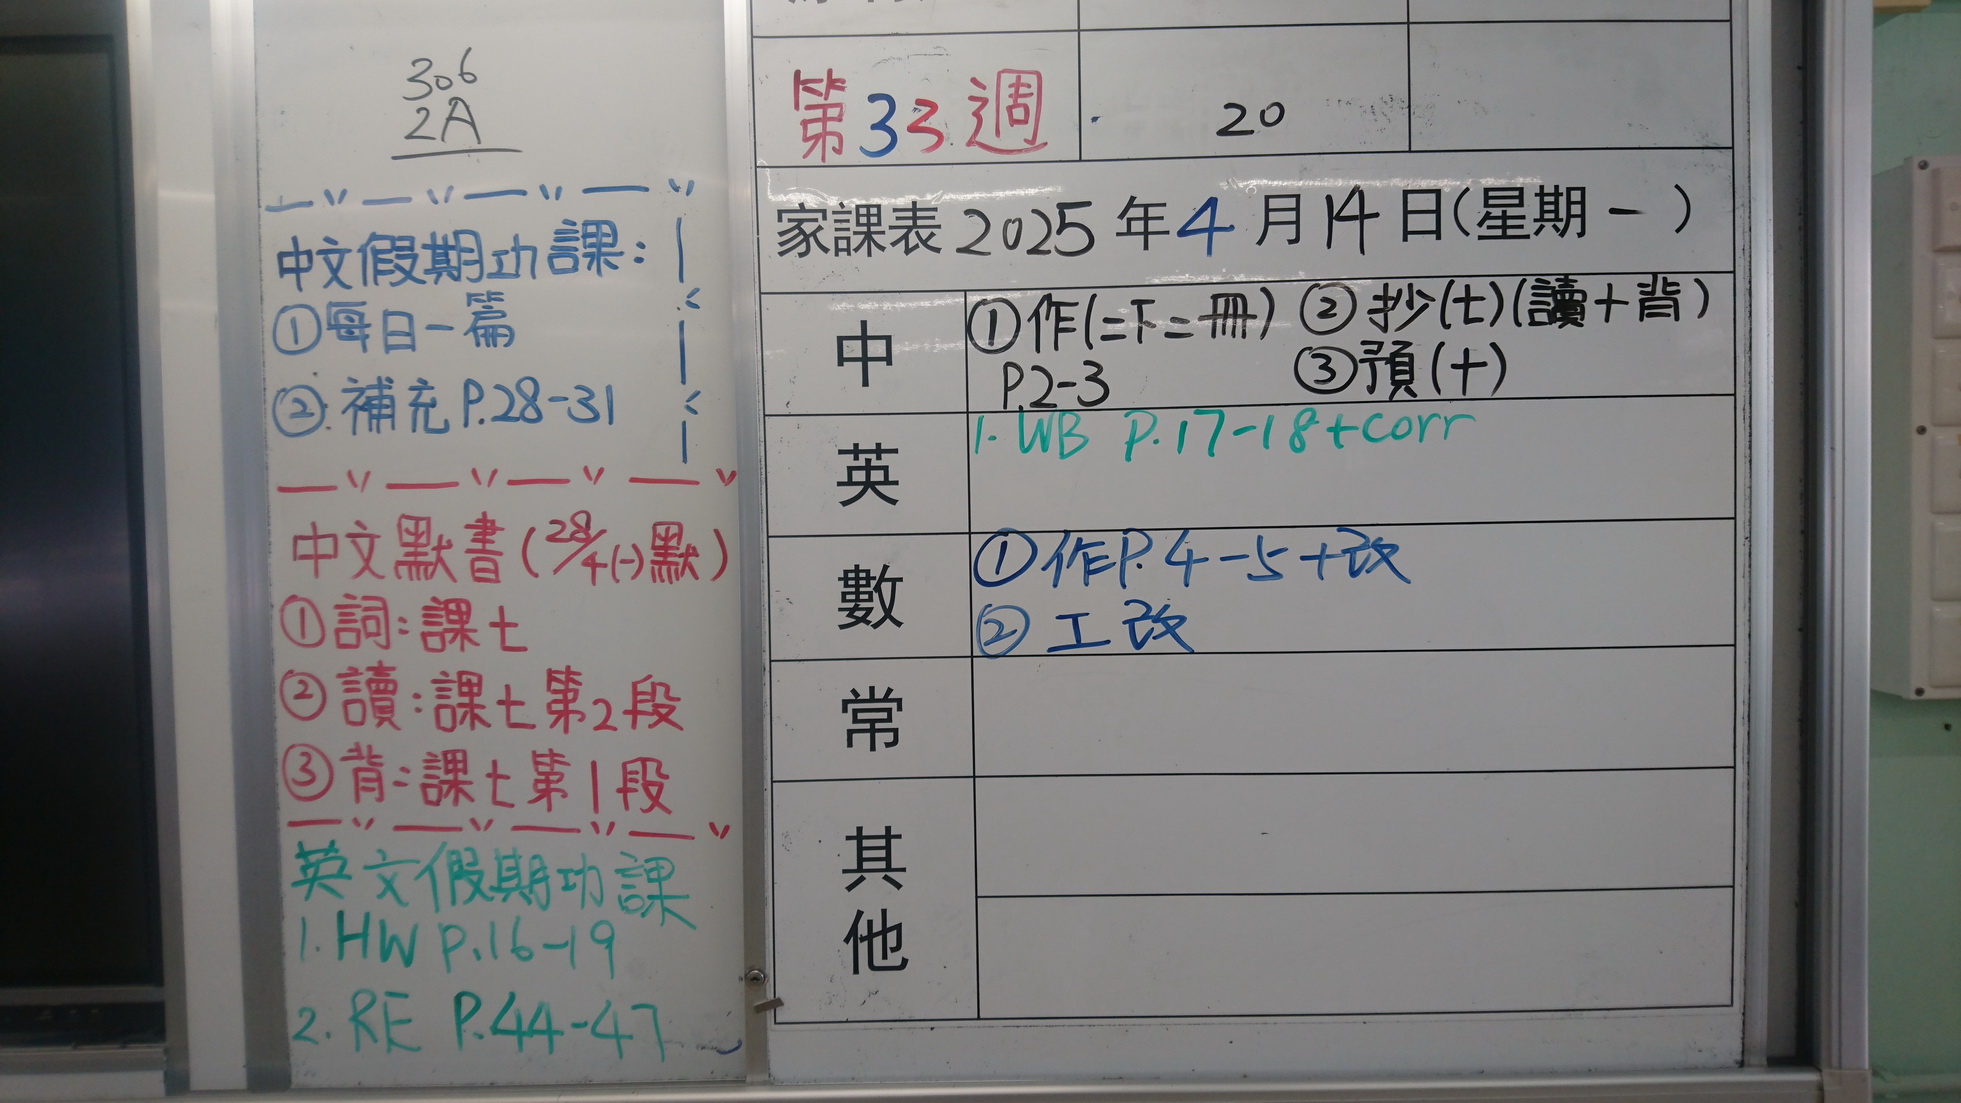 306
2A
中文假期功課：
①每日一篇
②補充 P.28-31
中文默書（28/4(一)默）
①詞：課七
②讀：課七第2段
③背：課七第1段
英文假期功課
1. HW P.16-19
2. RE P.44-47
第33週
20
家課表 2025年4月14日(星期一)
中
①作(二下二冊) ②抄(七)(讀+背)
P.2-3 ③預(十)
英
1. WB P.17-18+corr
數
①作P.4-5+改
②工改
常
其他